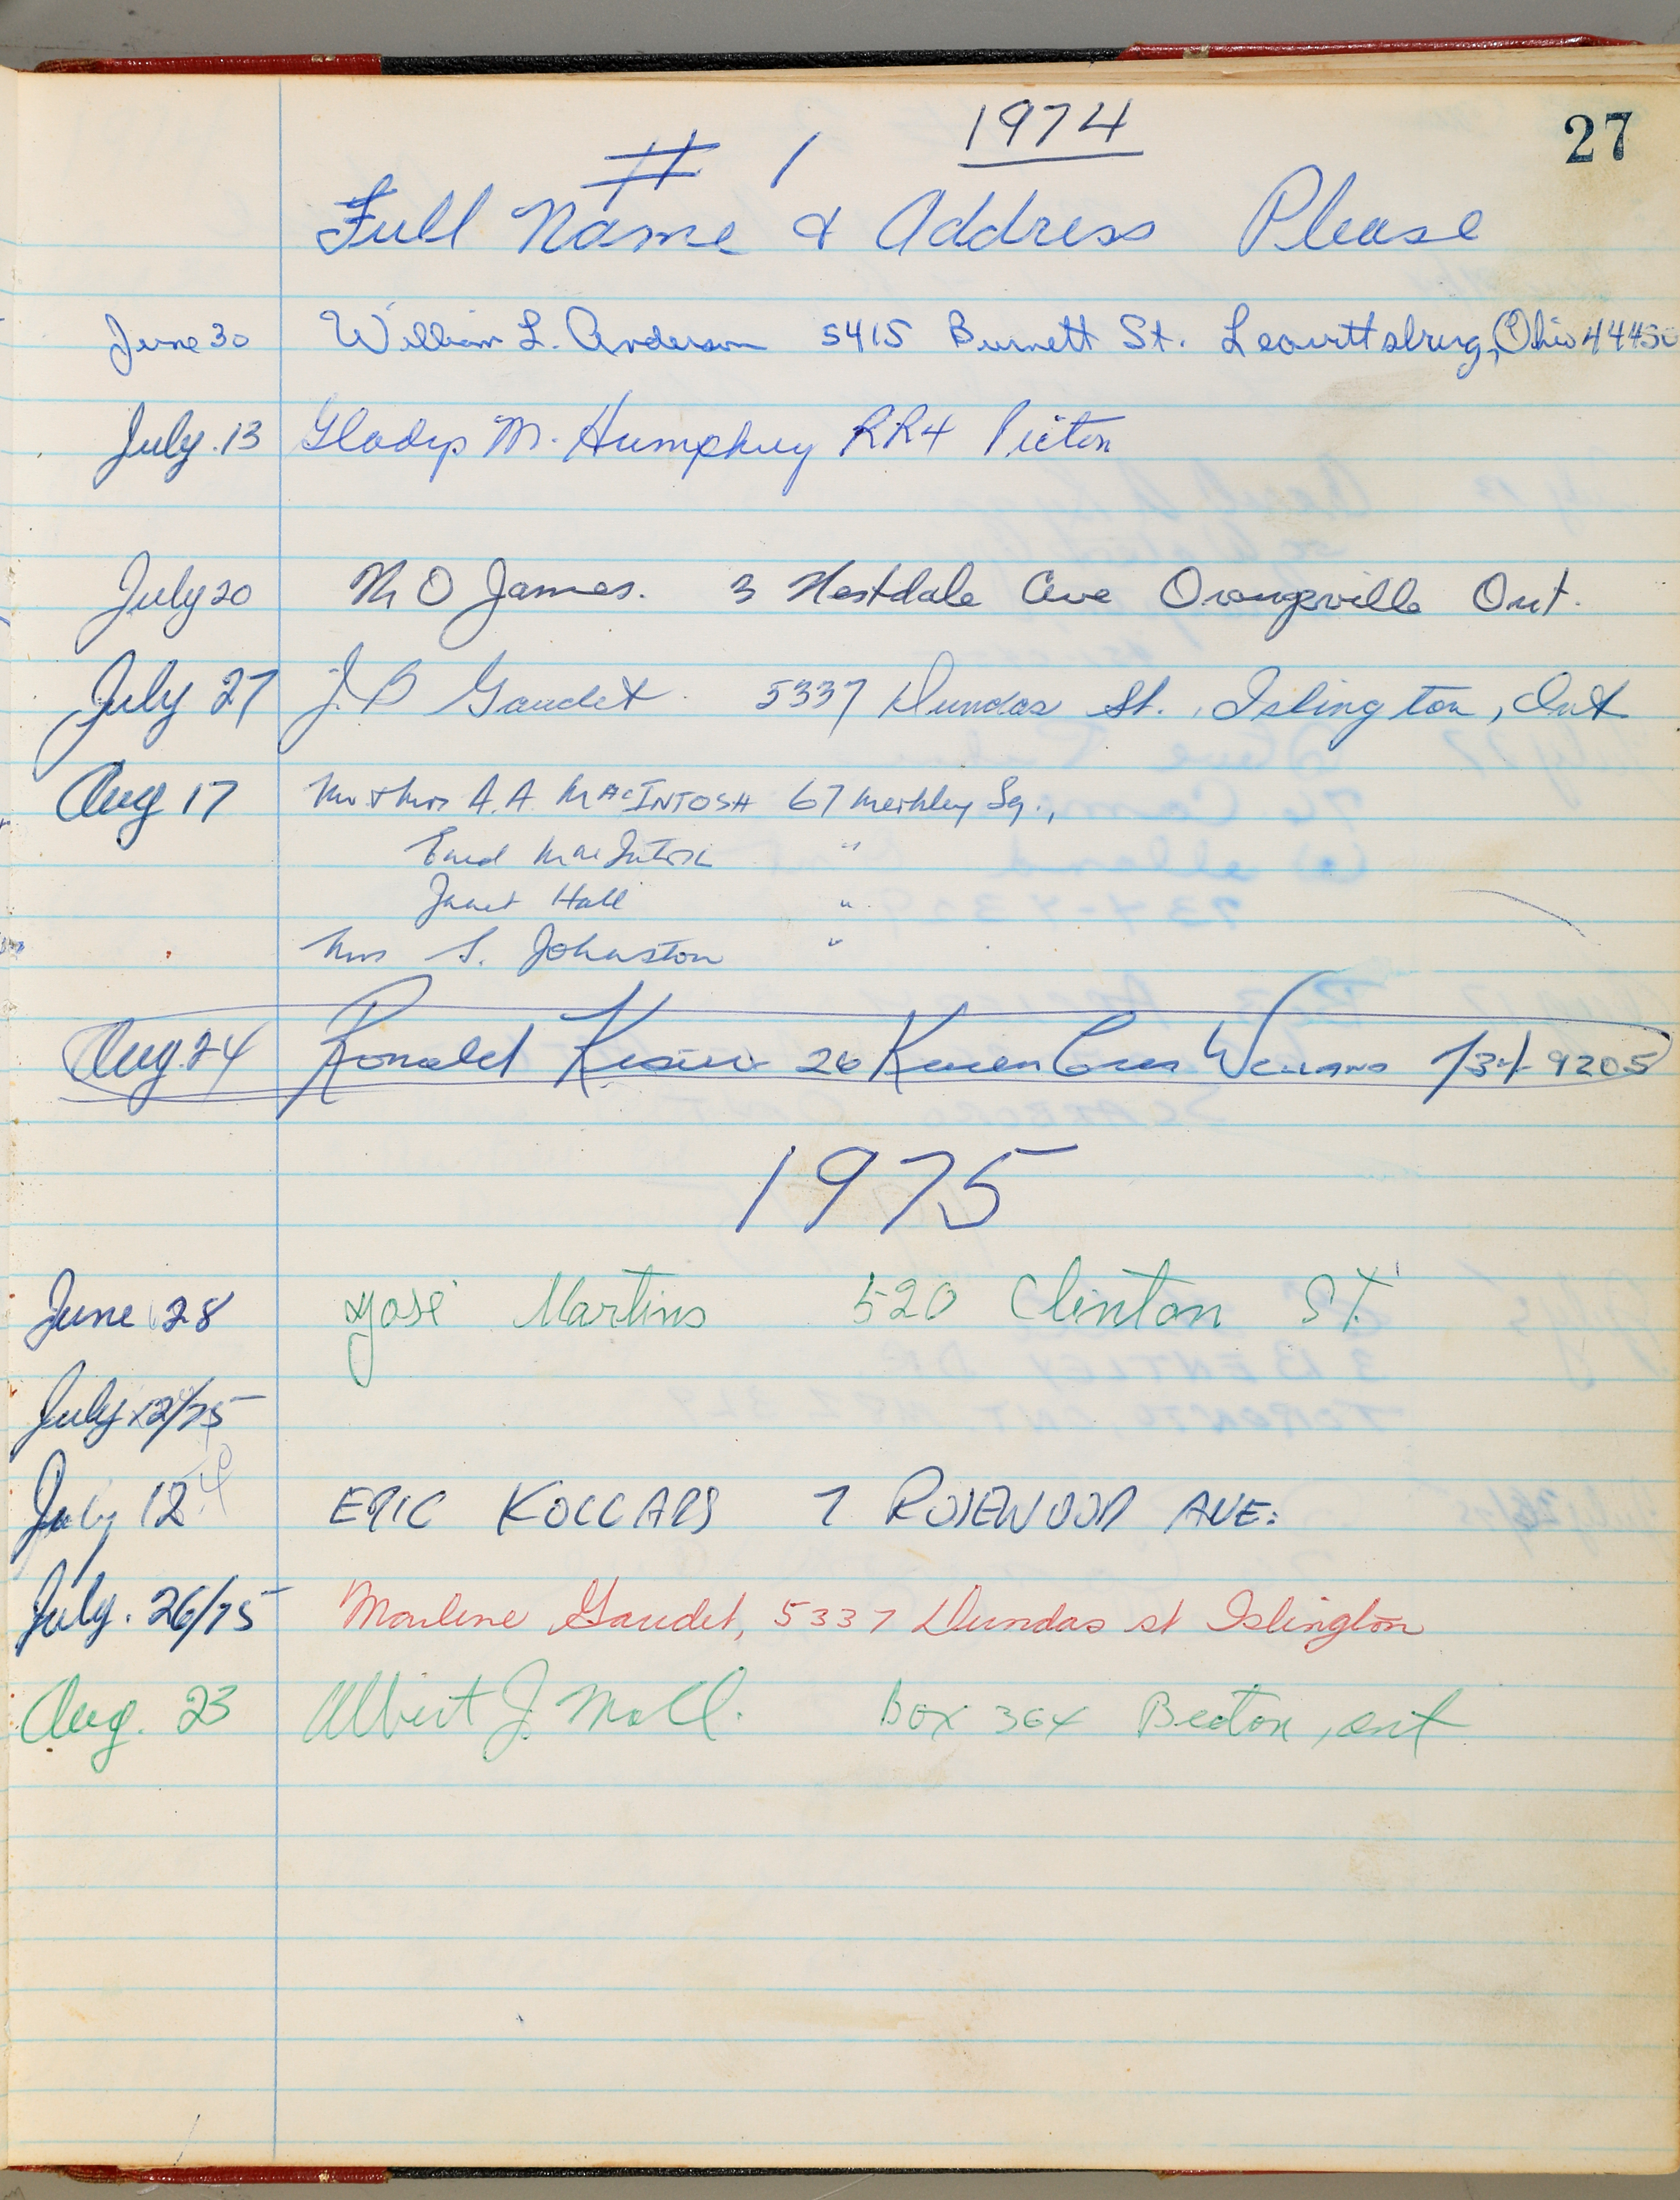 1974
27
# 1
Full Name & Address Please
June 30 William L. Anderson 5415 Burnett St. Leavittsburg, Ohio 44430
July 13 Gladys M. Humphrey RR4 Picton
July 20 M O James. 3 Westdale Ave Orangeville Ont.
July 27 J. B Gaudet 5337 Dundas St., Islington, Ont
Aug 17 Mr & Mrs A. A. MACINTOSH 67 Merkley Sq.,
Enid MacIntosh "
Janet Hall "
Mrs S. Johnston "
Aug 24 Ronald 26 Karen Cres 734-9205
1975
June 28 José Martins 520 Clinton ST.
July 12/75
July 12 ERIC KOLLARS 7 ROSEWOOD AVE:
July. 26/75 Marlene Gaudet, 5337 Dundas st Islington
Aug. 23 Albert J. Moll. Box 364 Beeton, ont